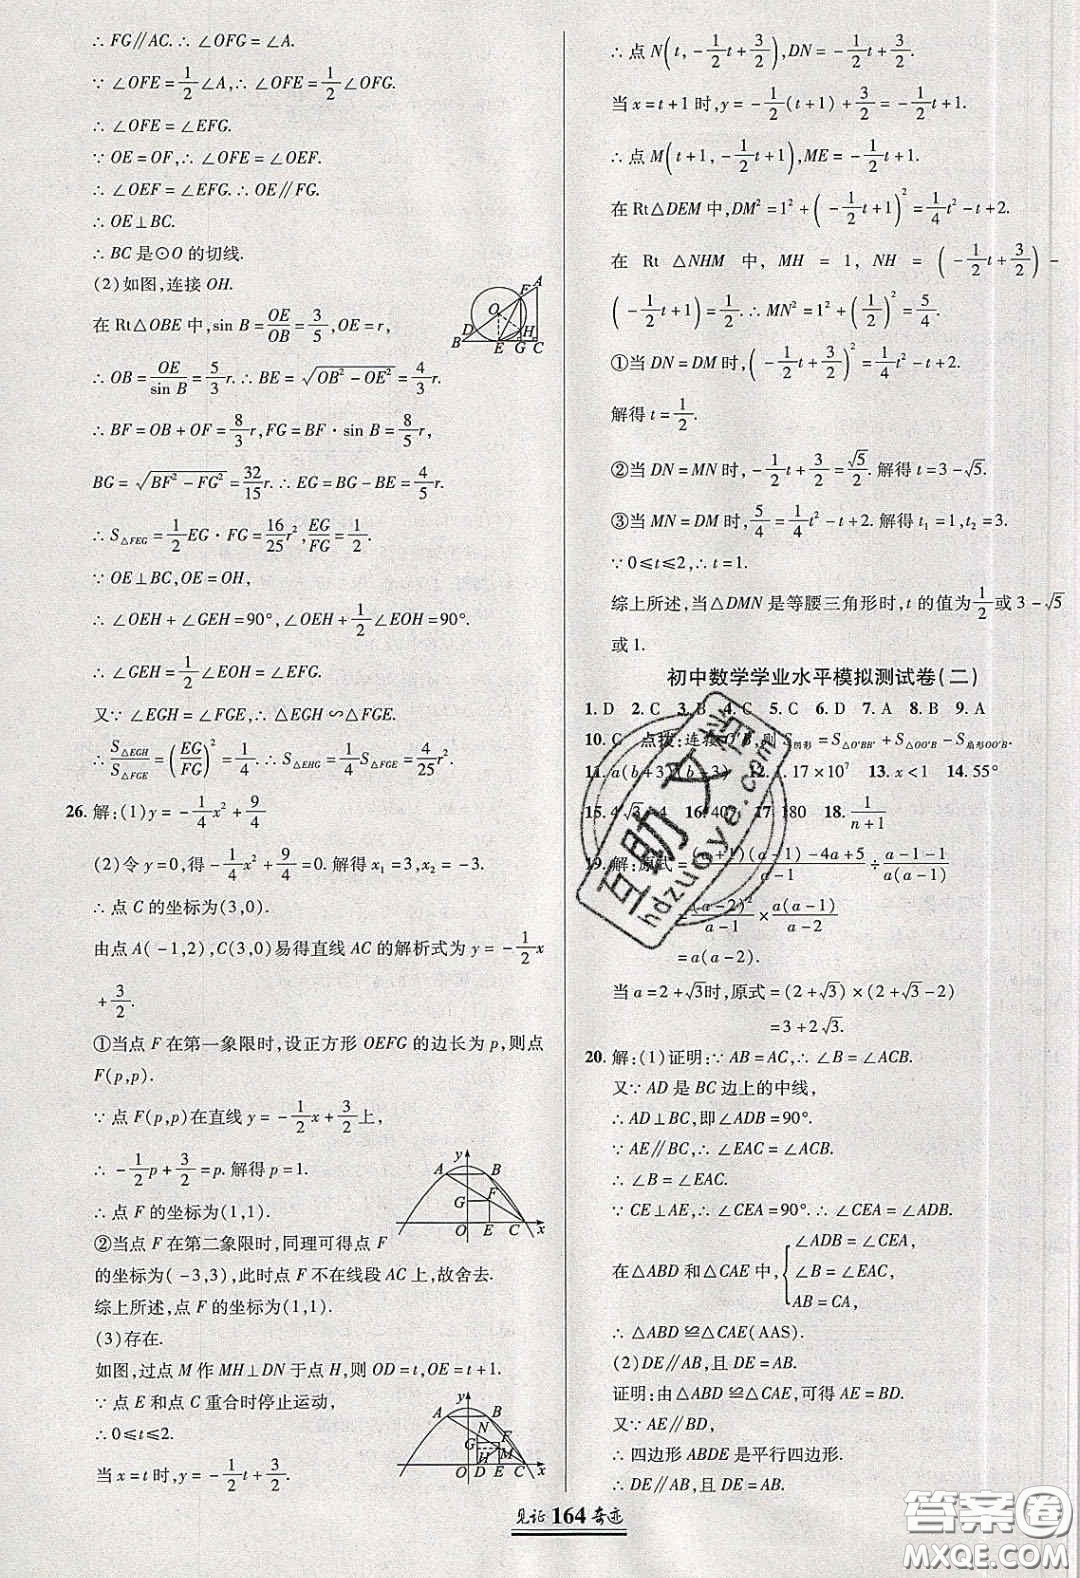 ∴ FG∥AC. ∴ ∠OFG = ∠A.
∵ ∠OFE = 1/2∠A, ∴ ∠OFE = 1/2∠OFG.
∴ ∠OFE = ∠EFG.
∵ OE = OF, ∴ ∠OFE = ∠OEF.
∴ ∠OEF = ∠EFG. ∴ OE∥FG.
∴ OE⊥BC.
∴ BC 是⊙O 的切线.
(2)如图,连接 OH.
在 Rt△OBE 中, sin B = OE/OB = 3/5, OE = r,
∴ OB = OE/sin B = 5/3 r. ∴ BE = √(OB² − OE²) = 4/3 r.
∴ BF = OB + OF = 8/3 r, FG = BF · sin B = 8/5 r,
BG = √(BF² − FG²) = 32/15 r. ∴ EG = BG − BE = 4/5 r.
∴ S△FEG = 1/2 EG · FG = 16/25 r², EG/FG = 1/2.
∵ OE⊥BC, OE = OH,
∴ ∠OEH + ∠GEH = 90°, ∠OEH + 1/2∠EOH = 90°.
∴ ∠GEH = 1/2∠EOH = ∠EFG.
又∵ ∠EGH = ∠FGE, ∴ △EGH∽△FGE.
∴ S△EGH/S△FGE = (EG/FG)² = 1/4. ∴ S△EHG = 1/4 S△FGE = 4/25 r².
26. 解:(1)y = −1/4 x² + 9/4
(2)令 y=0,得 −1/4 x² + 9/4 = 0. 解得 x₁ = 3, x₂ = −3.
∴ 点 C 的坐标为(3,0).
由点 A(−1,2), C(3,0)易得直线 AC 的解析式为 y = −1/2 x
+ 3/2.
①当点 F 在第一象限时,设正方形 OEFG 的边长为 p,则点
F(p,p).
∵ 点 F(p,p)在直线 y = −1/2 x + 3/2 上,
∴ −1/2 p + 3/2 = p. 解得 p = 1.
∴ 点 F 的坐标为(1,1).
②当点 F 在第二象限时,同理可得点 F
的坐标为(−3,3),此时点 F 不在线段 AC 上,故舍去.
综上所述,点 F 的坐标为(1,1).
(3)存在.
如图,过点 M 作 MH⊥DN 于点 H,则 OD = t, OE = t+1.
∵ 点 E 和点 C 重合时停止运动,
∴ 0≤t≤2.
当 x = t 时, y = −1/2 t + 3/2.
∴ 点 N(t, −1/2 t + 3/2), DN = −1/2 t + 3/2.
当 x = t+1 时, y = −1/2(t+1) + 3/2 = −1/2 t + 1.
∴ 点 M(t+1, −1/2 t + 1), ME = −1/2 t + 1.
在 Rt△DEM 中, DM² = 1² + (−1/2 t + 1)² = 1/4 t² − t + 2.
在 Rt △NHM 中, MH = 1, NH = (−1/2 t + 3/2) −
(−1/2 t + 1) = 1/2. ∴ MN² = 1² + (1/2)² = 5/4.
①当 DN = DM 时, (−1/2 t + 3/2)² = 1/4 t² − t + 2.
解得 t = 1/2.
②当 DN = MN 时, −1/2 t + 3/2 = √5/2. 解得 t = 3 − √5.
③当 MN = DM 时, 5/4 = 1/4 t² − t + 2. 解得 t₁ = 1, t₂ = 3.
∵ 0≤t≤2, ∴ t = 1.
综上所述,当△DMN 是等腰三角形时, t 的值为 1/2 或 3 − √5
或 1.
初中数学学业水平模拟测试卷(二)
1. D 2. C 3. B 4. C 5. C 6. D 7. A 8. B 9. A
10. C 点拨:连接 O′B,则 S阴影 = S△O′BB′ + S△OO′B − S扇形OO′B.
11. a(b+3)(b−3) 12. 1.17×10⁷ 13. x<1 14. 55°
15. 4√3−4 16. 407 17. 180 18. 1/(n+1)
19. 解:原式 = [(a+1)(a−1)−4a+5]/(a−1) ÷ (a−1−1)/[a(a−1)]
= (a−2)²/(a−1) × a(a−1)/(a−2)
= a(a−2).
当 a = 2+√3 时, 原式 = (2+√3)×(2+√3−2)
= 3+2√3.
20. 解:(1)证明: ∵ AB = AC, ∴ ∠B = ∠ACB.
又∵ AD 是 BC 边上的中线,
∴ AD⊥BC, 即∠ADB = 90°.
∵ AE∥BC, ∴ ∠EAC = ∠ACB.
∴ ∠B = ∠EAC.
∵ CE⊥AE, ∴ ∠CEA = 90°. ∴ ∠CEA = ∠ADB.
∠ADB = ∠CEA,
在△ABD 和△CAE 中, { ∠B = ∠EAC,
AB = CA,
∴ △ABD≌△CAE(AAS).
(2)DE∥AB, 且 DE = AB.
证明:由△ABD≌△CAE, 可得 AE = BD.
又∵ AE∥BD,
∴ 四边形 ABDE 是平行四边形.
∴ DE∥AB, 且 DE = AB.
见证 164 奇迹
互助文档
hdzuoye.com
答案圈
MXQE.COM